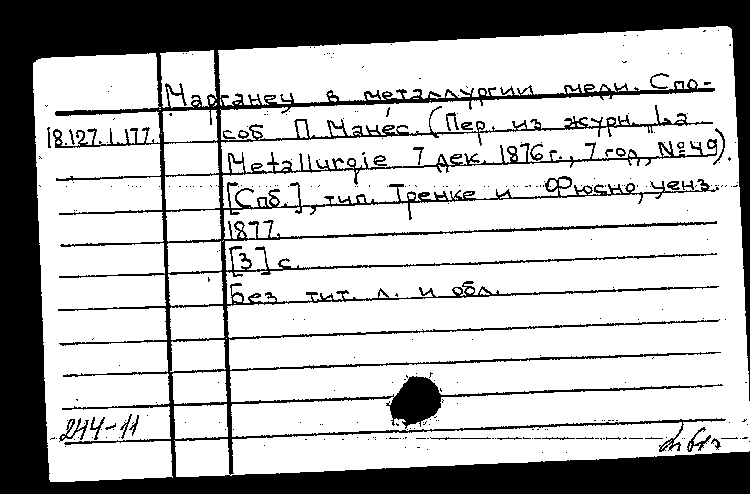 Марганец в металлургии меди. Спо-
18.127.1.177.
соб П. Манес. (Пер. из журн. „La
Metallurgie 7 дек. 1876 г., 7 год, №49).
[Спб.], тип. Тренке и Фюсно, ценз.
1877.
[3] с.
Без тит. л. и обл.
244-11